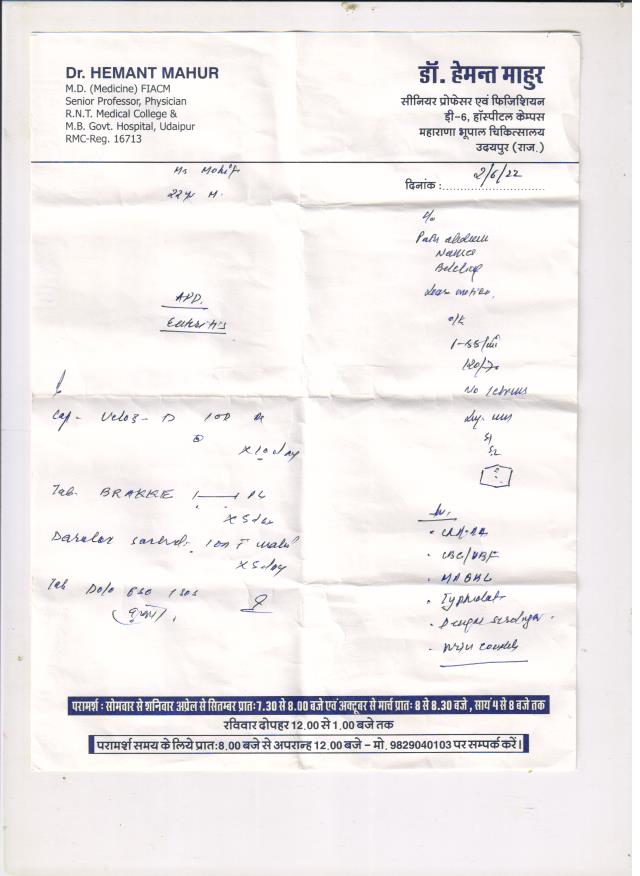 Dr. HEMANT MAHUR
M.D. (Medicine) FIACM
Senior Professor, Physician
R.N.T. Medical College &
M.B. Govt. Hospital, Udaipur
RMC-Reg. 16713
डॉ. हेमन्त माहुर
सीनियर प्रोफेसर एवं फिजिशियन
डी-6, हॉस्पीटल केम्पस
महाराणा भूपाल चिकित्सालय
उदयपुर (राज.)
दिनांक : 2/6/22
Mr Mohit
22yr M.
c/o
Pain abdomen
Nausea
Belching
loose motion.
APD.
Enteritis
o/e
120/70
No icterus
S1
S2
Cap- Veloz-D 1 OD
x 10 day
Tab. BRAKKE
x 5 day
Darolac sachet
x 5 day
Tab Dolo 650 1 SOS
Inv.
Typhidot
Dengue serology
परामर्श : सोमवार से शनिवार अप्रेल से सितम्बर प्रातः 7.30 से 8.00 बजे एवं अक्टूबर से मार्च प्रातः 8 से 8.30 बजे , सायं 4 से 8 बजे तक
रविवार दोपहर 12.00 से 1.00 बजे तक
परामर्श समय के लिये प्रातः 8.00 बजे से अपरान्ह 12.00 बजे – मो. 9829040103 पर सम्पर्क करें।